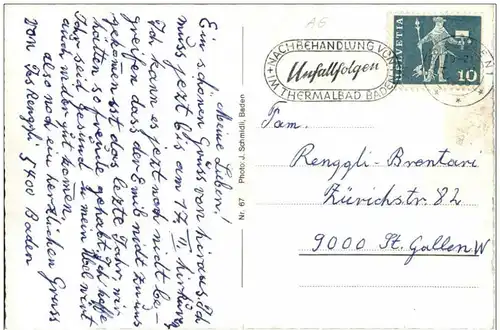 Meine Lieben!
Ein schönen Gruss von hieraus. Ich
muss jezt bis am 17. II. hir
Ich kann es jezt noch nicht be-
greifen dass der Emil nicht zu uns
gekommen ist das lezte Jahr, wir
hätten so freude gehabt, Ich hoffe
Ihr seid gesund mein
auch wieder gut komen,
also noch ein herzlichen Gruss
von Jos Renggli 5400 Baden
Nr. 67 Photo: J. Schmidli, Baden
AG
NACHBEHANDLUNG VON
Unfallfolgen
IM THERMALBAD BADEN
HELVETIA
10
Fam.
Renggli-Brentari
Zürichstr. 82
9000 St. Gallen W